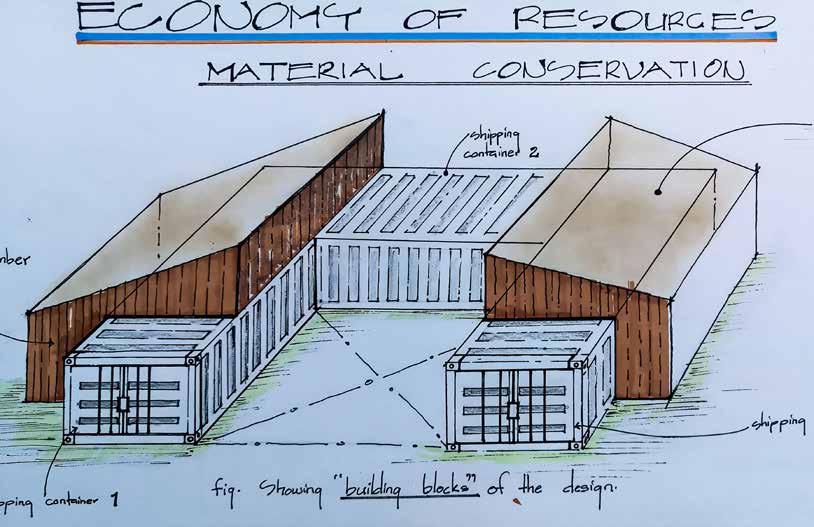 ECONOMY OF RESOURCES
MATERIAL CONSERVATION
shipping
container 2
mber
shipping
pping container 1
fig. Showing "building blocks" of the design.